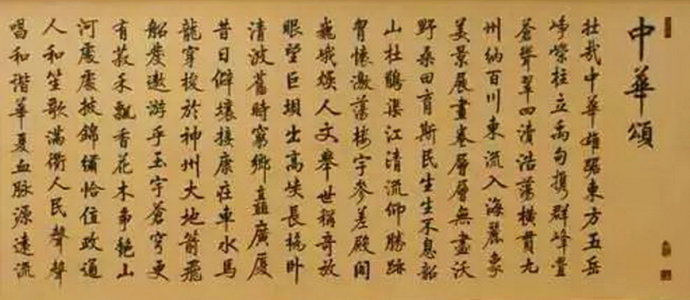 中華頌
壯哉中華雄踞東方五岳
崢嶸柱立禹甸攜群峰疊
蒼聳翠四瀆浩蕩橫貫九
州納百川東流入海麗象
美景展畫卷層層無盡沃
野桑田育斯民生生不息韶
山杜鵑渠江清流仰勝跡
胷懷激蕩樓宇參差殿閣
巍峨煥人文舉世稱奇放
眼望巨壩出高峽長橋卧
清波舊時窮鄉矗廣厦
昔日僻壤接康莊車水馬
龍穿梭於神州大地箭飛
船度遨游乎玉宇蒼穹更
有菽禾飄香花木爭艷山
河處處披錦繡恰值政通
人和笙歌滿衢人民聲聲
唱和諧華夏血脉源遠流